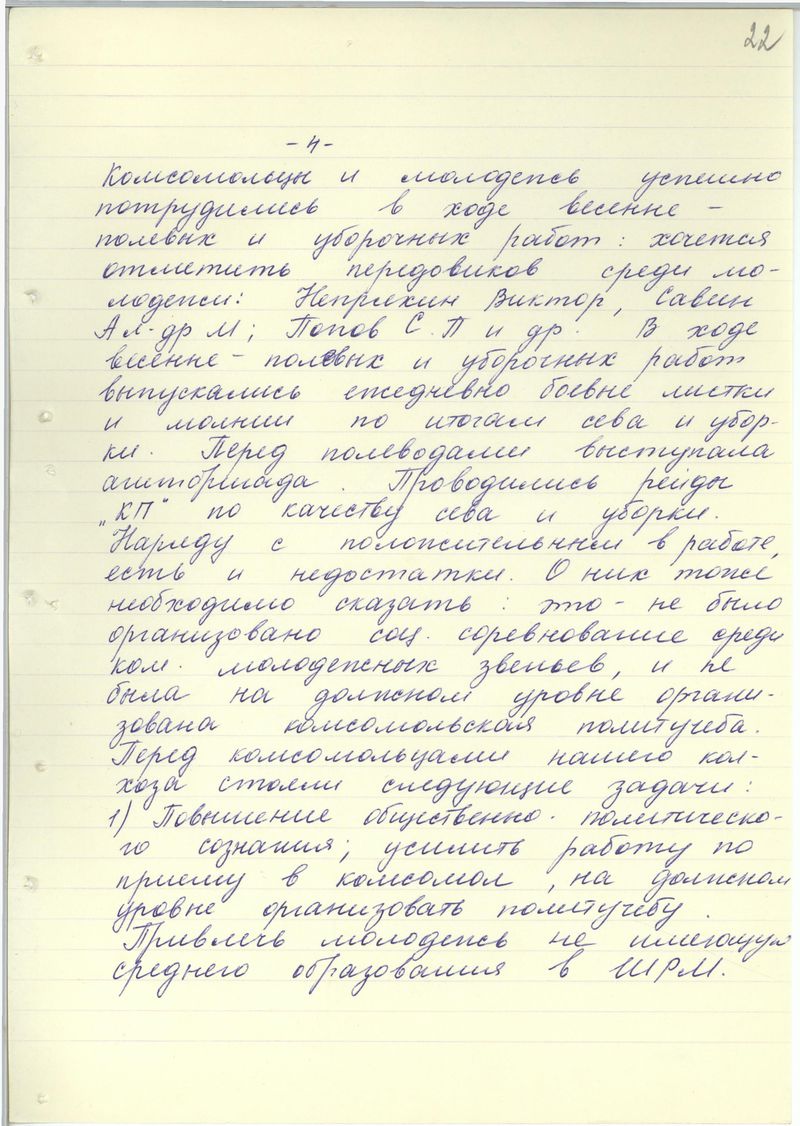 22
- 4 -
Комсомольцы и молодежь успешно
потрудились в ходе весенне -
полевых и уборочных работ: хочется
отметить передовиков среди мо-
лодежи: Непряхин Виктор, Савин
Ал-др М; Попов С.П и др. В ходе
весенне - полевых и уборочных работ
выпускались ежедневно боевые листки
и молнии по итогам сева и убор-
ки. Перед полеводами выступала
агитбригада. Проводились рейды
„КП" по качеству сева и уборки.
Наряду с положительным в работе,
есть и недостатки. О них тоже
необходимо сказать: это - не было
организовано соц. соревнование среди
ком. молодежных звеньев, и не
была на должном уровне органи-
зована комсомольская политучеба.
Перед комсомольцами нашего кол-
хоза стояли следующие задачи:
1) Повышение общественно-политическо-
го сознания; усилить работу по
приему в комсомол, на должном
уровне организовать политучебу.
Привлечь молодежь не имеющую
среднего образования в ШРМ.